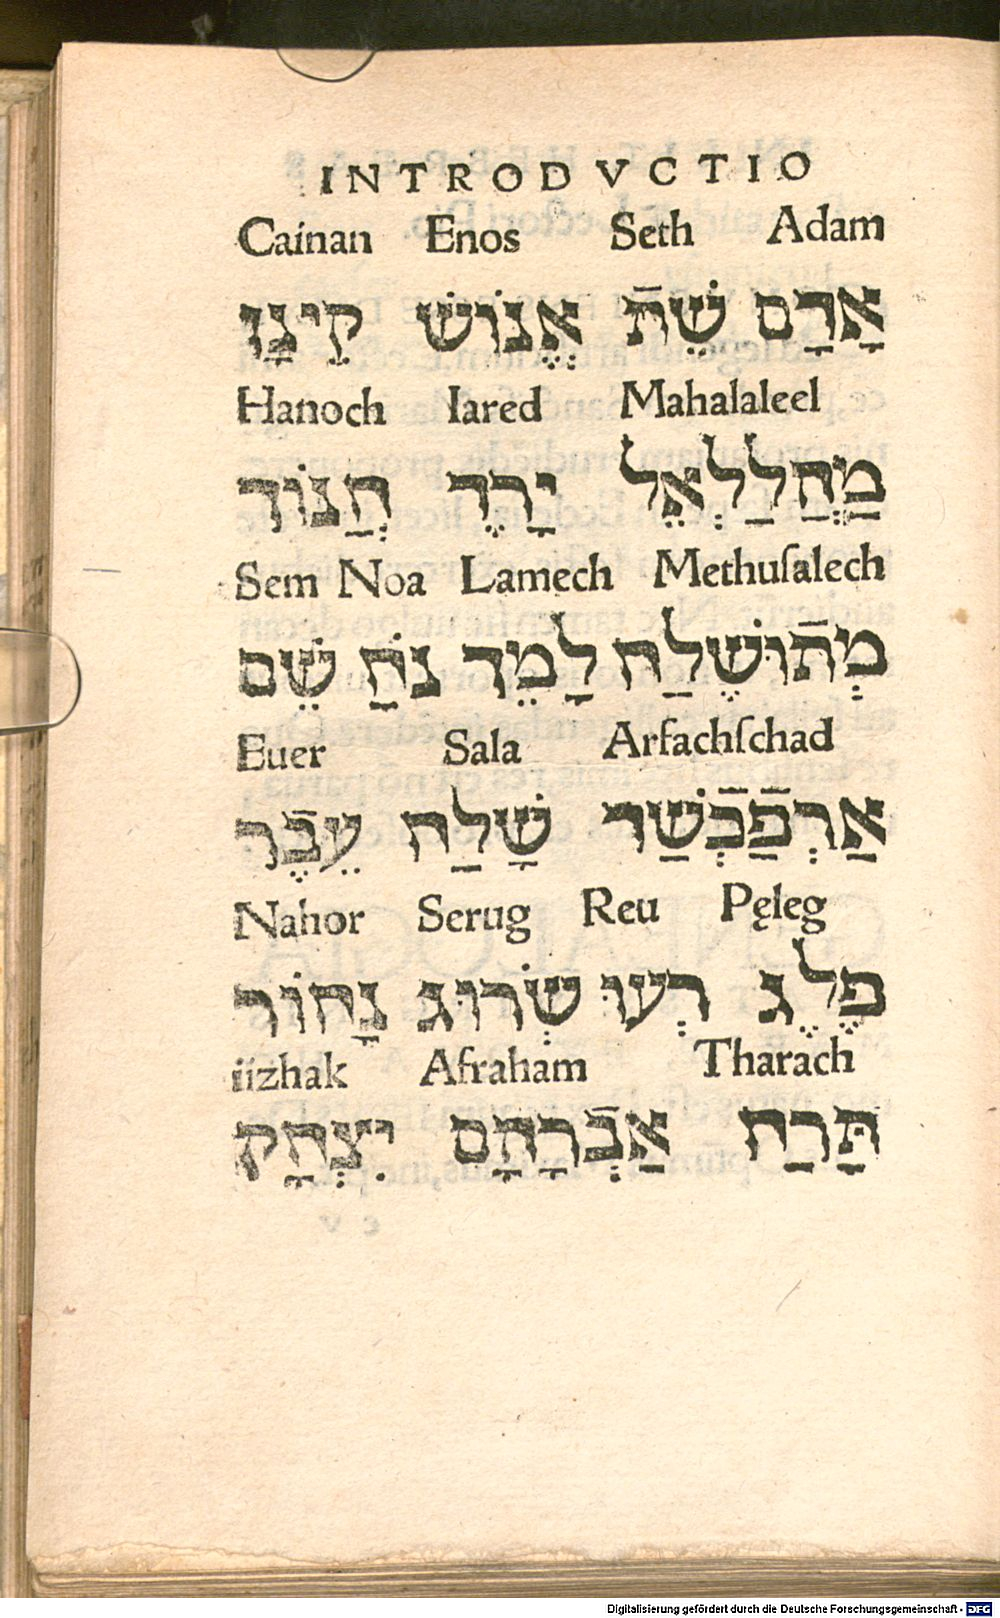 INTRODVCTIO
Cainan Enos Seth Adam
אָדָם שֵׁתֿ אֱנוֹשׁ קֵינָן
Hanoch Iared Mahalaleel
מַהֲלַלְאֵל יָרֶד חֲנוֹךְ
Sem Noa Lamech Methuſalech
מְתֿוּשֶׁלַח לָמֵד נֹחַ שֵׁם
Euer Sala Arfachſchad
אַרְפַּכְֿשַׁד שָׁלַח עֵבֶֿר
Nahor Serug Reu Pęleg
פֶלֶג רְעוּ שְׂרוּג נָחוֹר
iizhak Afraham Tharach
תָּרַח אַבְֿרָהָם יִצְחָק
Digitalisierung gefördert durch die Deutsche Forschungsgemeinschaft - DFG